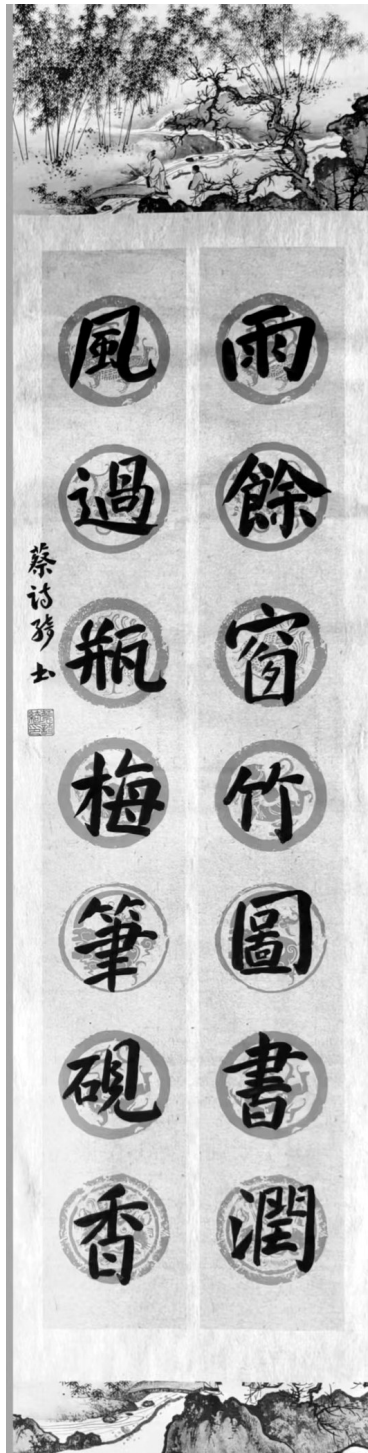 雨餘窗竹圖書潤
風過瓶梅筆硯香
蔡詩婷书